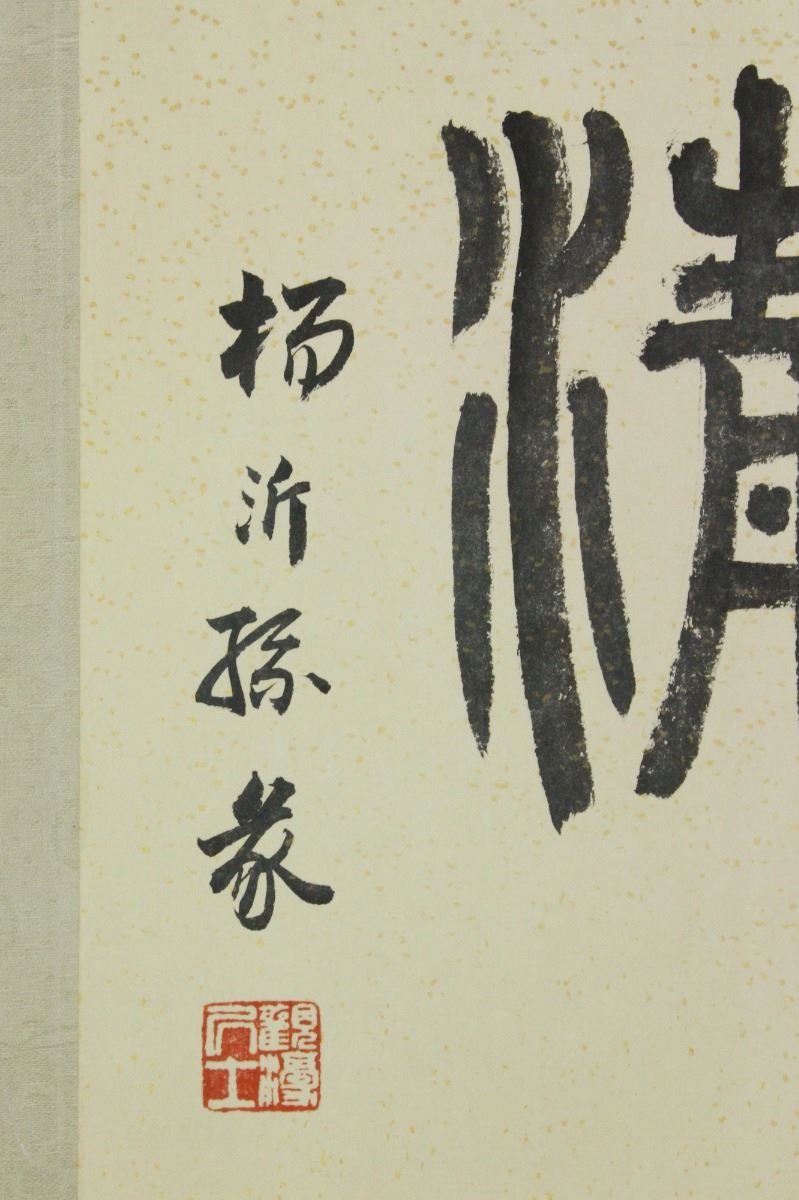 清
楊沂孫篆
觀濠居士